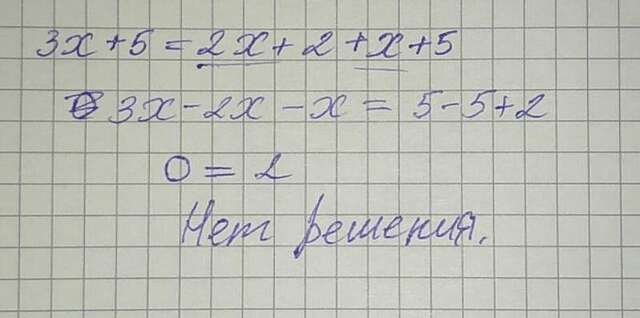 3x+5=2x+2+x+5
3x-2x-x=5-5+2
0=2
Нет решения.